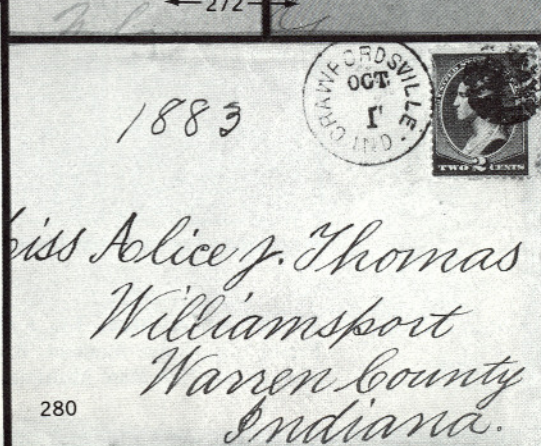 272
1883
CRAWFORDSVILLE
OCT
1
IND.
TWO 2 CENTS
iss Alice J. Thomas
Williamsport
Warren County
Indiana.
280